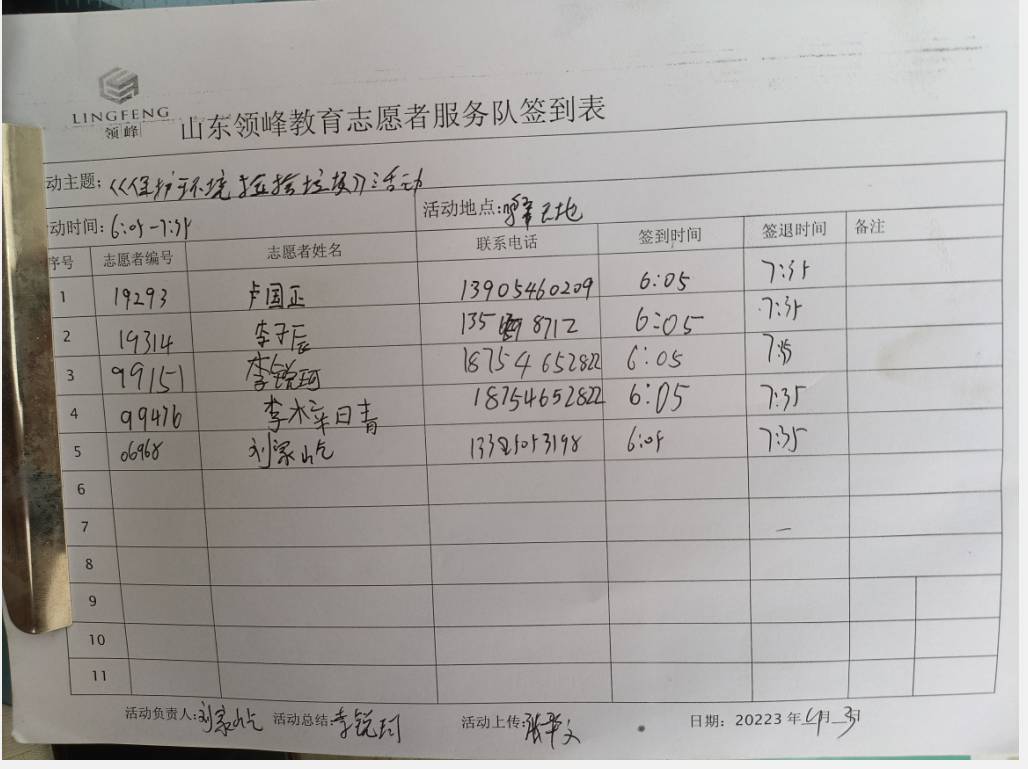 LINGFENG
领峰
山东领峰教育志愿者服务队签到表
动主题：《保护环境 捡拾垃圾》活动
动时间：6:05-7:35 活动地点：
序号 志愿者编号 志愿者姓名 联系电话 签到时间 签退时间 备注
1 19293 卢国正 13905460209 6:05 7:35
2 19314 李子辰 135 8712 6:05 7:35
3 99151 李锐珂 18754652822 6:05
4 99476 李 18754652822 6:05 7:35
5 06968 刘家屹 6:05 7:35
6
7
8
9
10
11
活动负责人：刘家屹 活动总结：李锐珂 活动上传：张 文 日期：20223年4月3日